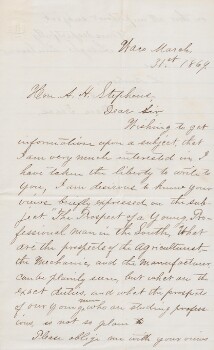 Waco March
31st 1869
Hon A. H. Stephens,
Dear Sir
Wishing to get
information upon a subject, that
I am very much interested in, I
have taken the liberty to write to
you, I am desirous to know your
views briefly expressed on the sub-
ject The Prospect of a Young Pro-
fessional man in the South, What
are the prospects of the Agriculturist
the Mechanic and the Manufacturer
can be plainly seen, but what are the
exact duties, and what the prospects
of our young men who are studying profess-
ions, is not so plain
Please oblige me with your views